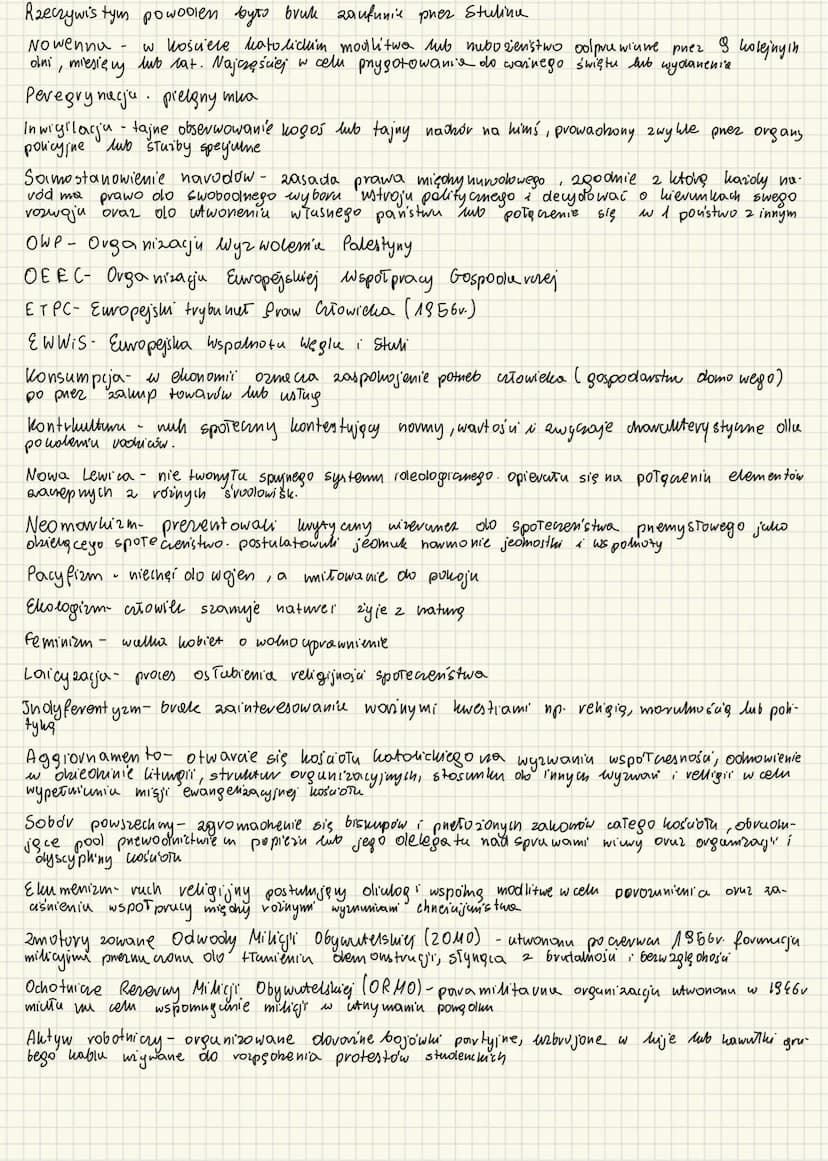 Rzeczywistym powodem było brak zaufania przez Stalina
Nowenna - w kościele katolickim modlitwa lub nabożeństwo odprawiane przez 9 kolejnych
dni, miesięcy lub lat. Najczęściej w celu przygotowania do ważnego święta lub wydarzenia
Peregrynacja - pielgrzymka
Inwigilacja - tajne obserwowanie kogoś lub tajny nadzór na kimś, prowadzony zwykle przez organy
policyjne lub służby specjalne
Samostanowienie narodów - zasada prawa międzynarodowego, zgodnie z którą każdy na-
ród ma prawo do swobodnego wyboru ustroju politycznego i decydować o kierunkach swego
rozwoju oraz do utworzenia własnego państwa lub połączenie się w 1 państwo z innym
OWP - Organizacja Wyzwolenia Palestyny
OEEC - Organizacja Europejskiej Współpracy Gospodarczej
ETPC - Europejski trybunał Praw Człowieka (1956r.)
EWWiS - Europejska Wspólnota Węgla i Stali
Konsumpcja - w ekonomii oznacza zaspokojenie potrzeb człowieka (gospodarstwa domowego)
po przez zakup towarów lub usług
Kontrkultura - ruch społeczny kontestujący normy, wartości i zwyczaje charakterystyczne dla
pokolenia rodziców.
Nowa Lewica - nie tworzyła spójnego systemu ideologicznego. opierała się na połączeniu elementów
zaczerpnych z różnych środowisk.
Neomarkizm - prezentowali krytyczny wizerunek do społeczeństwa przemysłowego jako
obiecującego społeczeństwo. postulatowali jednak harmonie jednostki i wspólnoty
Pacyfizm - niechęć do wojen, a miłowanie do pokoju
Ekologizm - człowiek szanuje naturę i żyje z naturą
Feminizm - walka kobiet o wolnouprawnienie
Laicyzacja - proces osłabienia religijności społeczeństwa
Indyferentyzm - brak zainteresowania ważnymi kwestiami np. religią, moralnością lub poli-
tyką
Aggiornamento - otwarcie się kościoła katolickiego na wyzwania współczesności, odnowienie
w dziedzinie liturgii, struktur organizacyjnych, stosunku do innych wyznań i religii w celu
wypełniania misji ewangelizacyjnej kościoła
Sobór powszechny - zgromadzenie się biskupów i przełożonych zakonów całego kościoła, obradu-
jące pod przewodnictwem papieża lub jego delegata nad sprawami wiary oraz organizacji i
dyscypliny kościoła
Ekumenizm - ruch religijny postulujący dialog i wspólną modlitwę w celu porozumienia oraz za-
cieśnieniu współpracy między różnymi wyznaniami chrześcijaństwa
Zmotoryzowane Odwody Milicji Obywatelskiej (ZOMO) - utworzona po czerwcu 1956r. formacja
milicyjna przeznaczona do tłumienia demonstracji, słynąca z brutalności i bezwzględności
Ochotnicze Rezerwy Milicji Obywatelskiej (ORMO) - paramilitarna organizacja utworzona w 1946r
miała na celu wspomaganie milicji w utrzymaniu porządku
Aktyw robotniczy - organizowane doraźne bojówki partyjne, uzbrojone w kije lub kawałki gru-
bego kabla używane do rozpędzenia protestów studenckich